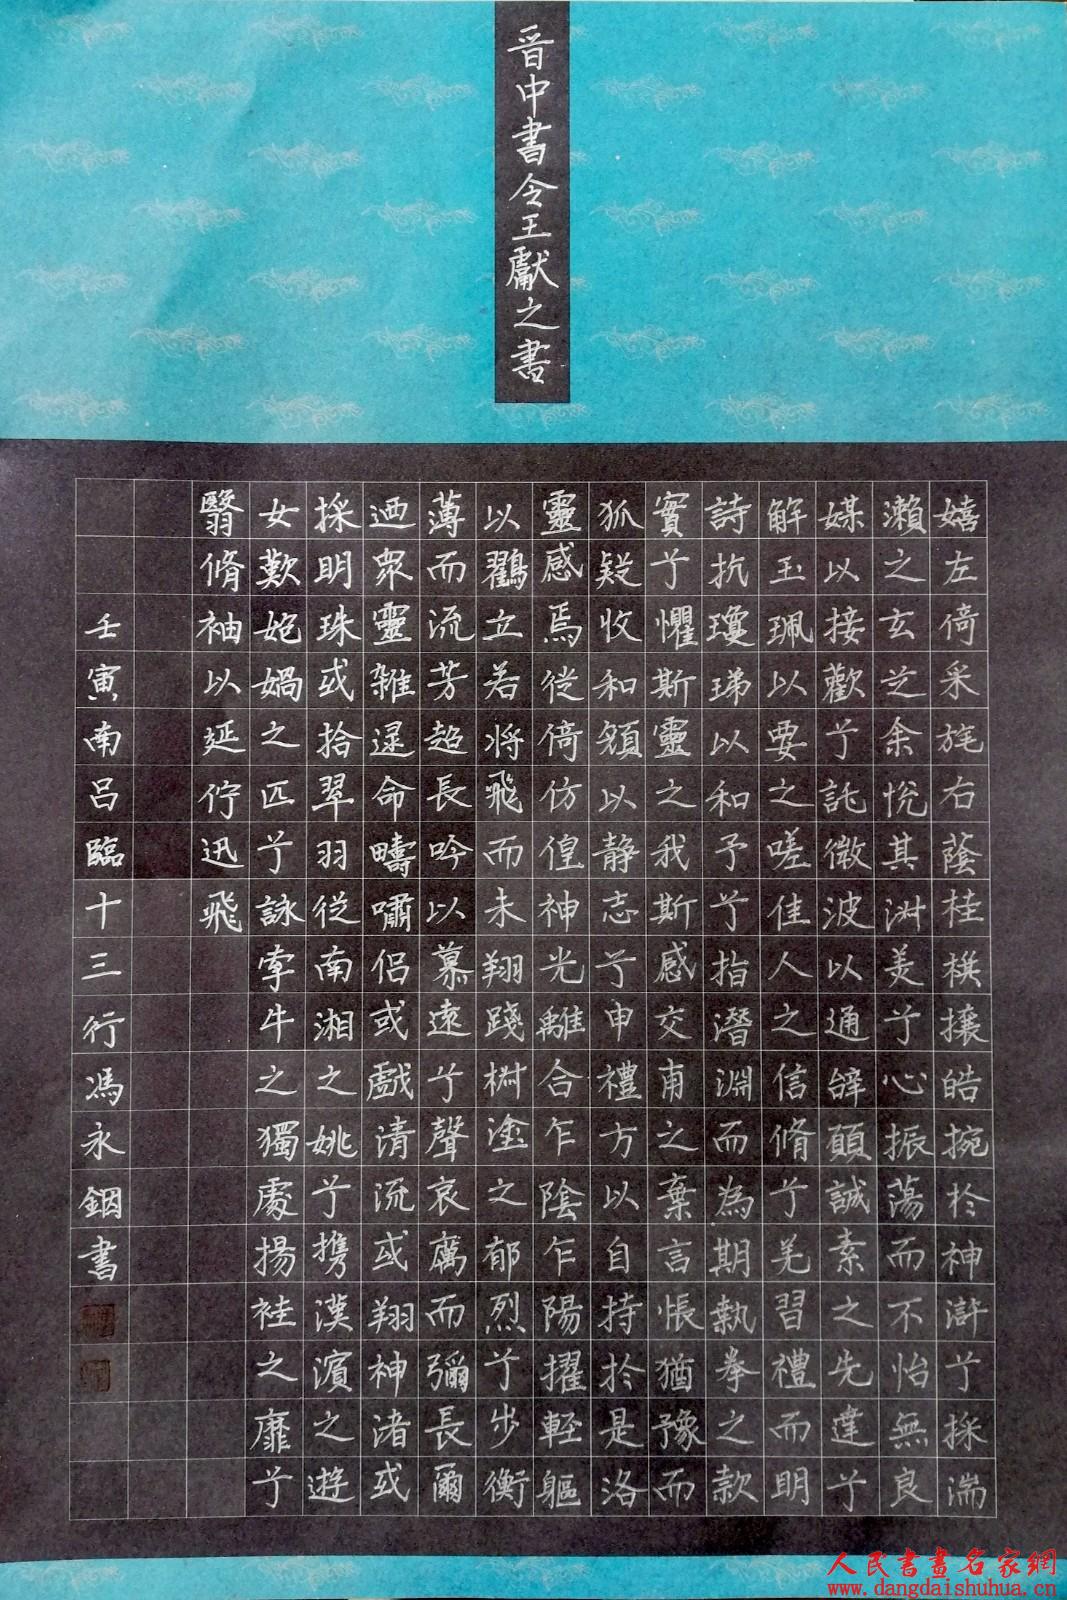 晉中書令王獻之書
嬉左倚采旄右蔭桂椇攘皓捥於神滸兮採湍
瀨之玄芝余悅其淋美兮心振蕩而不怡無良
媒以接歡兮託微波以通辭願誠素之先達兮
解玉珮以要之嗟佳人之信脩兮羌習禮而明
詩抗瓊珶以和予兮指潛淵而為期執拳之款
實兮懼斯靈之我斯感交甫之棄言悵猶豫而
狐疑收和顏以静志兮申禮方以自持於是洛
靈感焉徙倚仿偟神光離合乍陰乍陽擢輕軀
以鸖立若將飛而未翔踐椒塗之郁烈兮步衡
薄而流芳超長吟以慕遠兮聲哀厲而彌長爾
迺眾靈雜遝命疇嘯侶或戲清流或翔神渚或
採明珠或拾翠羽從南湘之姚兮攜漢濱之遊
女歎匏媧之匹兮詠牽牛之獨處揚袿之靡兮
翳脩袖以延佇迅飛
壬寅南呂臨十三行馮永錮書
人民書畫名家網
www.dangdaishuhua.cn